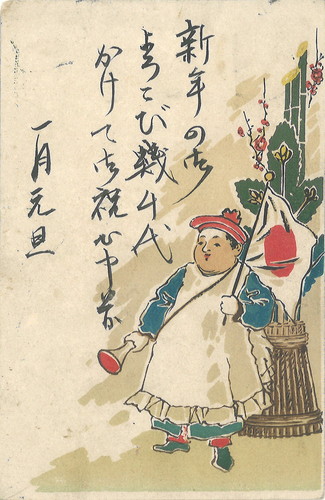 新年の御
よろこび幾千代
かけて御祝心申
一月元旦